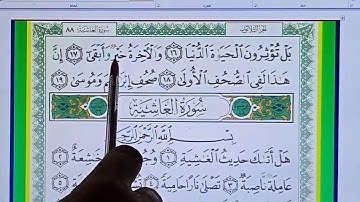 سورة الغاشية ٨٨ الجزء الثلاثون
بَلْ تُؤْثِرُونَ ٱلْحَيَوٰةَ ٱلدُّنْيَا ١٦ وَٱلْءَاخِرَةُ خَيْرٌ وَأَبْقَىٰٓ ١٧ إِنَّ
هَٰذَا لَفِى ٱلصُّحُفِ ٱلْأُولَىٰ ١٨ صُحُفِ إِبْرَٰهِيمَ وَمُوسَىٰ ١٩
سُورَةُ ٱلْغَاشِيَةِ
بِسْمِ ٱللَّهِ ٱلرَّحْمَٰنِ ٱلرَّحِيمِ
هَلْ أَتَىٰكَ حَدِيثُ ٱلْغَٰشِيَةِ ١ وُجُوهٌ خَٰشِعَةٌ ٢
عَامِلَةٌ نَّاصِبَةٌ ٣ تَصْلَىٰ نَارًا حَامِيَةً ٤ ٥